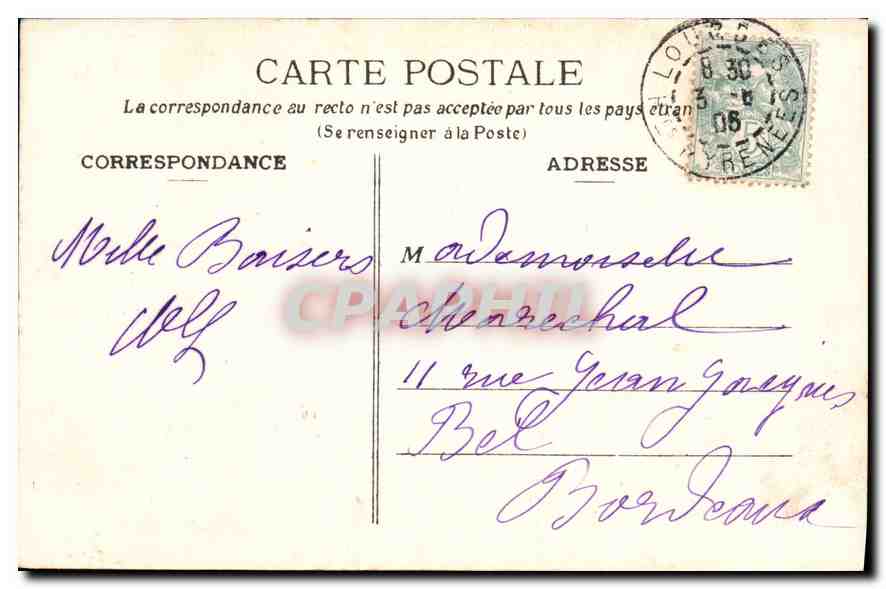 CARTE POSTALE
La correspondance au recto n'est pas acceptée par tous les pays étran
(Se renseigner à la Poste)
LOURDES
8 30
3 - 6
06
PYRENEES
CORRESPONDANCE
ADRESSE
Mille Baisers
Mademoiselle
Marechal
11 rue Jean Jacques
Bel
Bordeaux
CPAPHIL